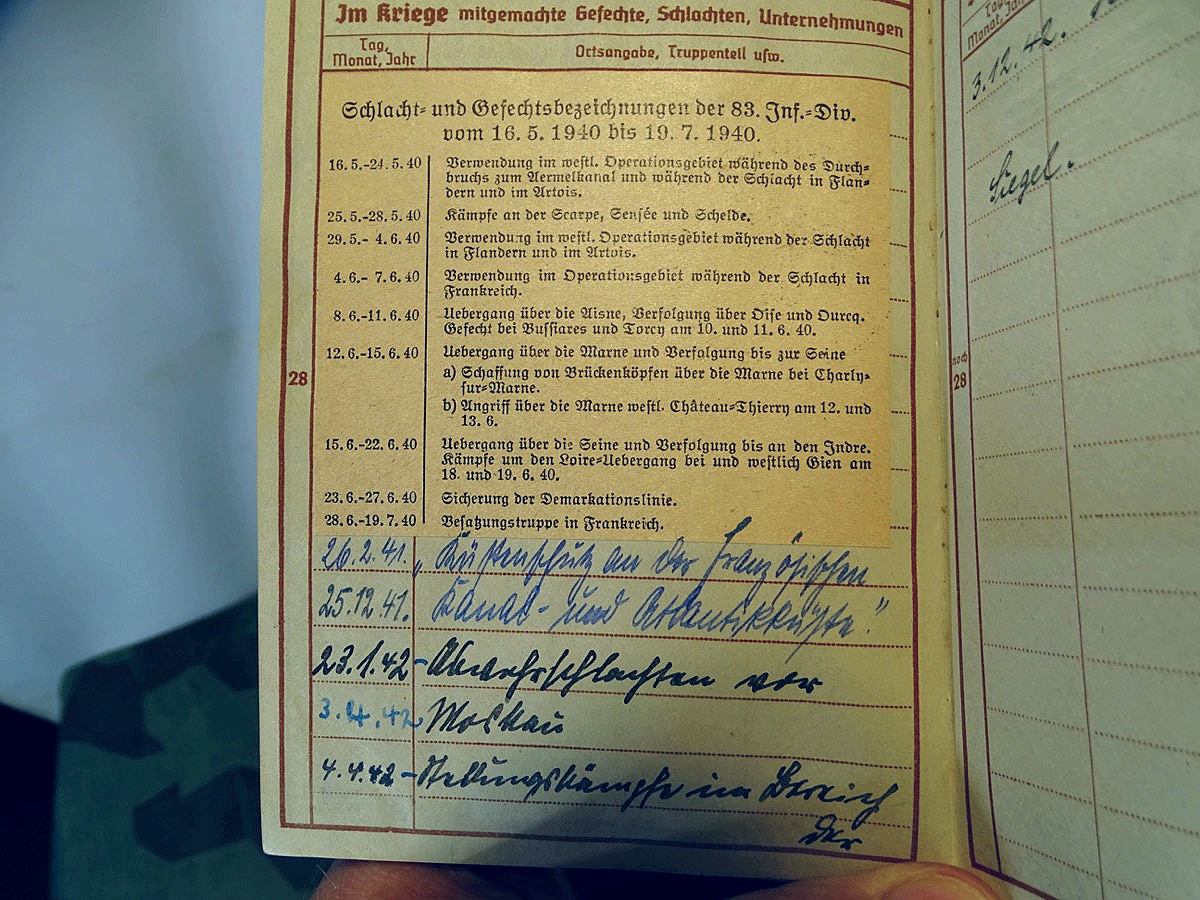 Im Kriege mitgemachte Gefechte, Schlachten, Unternehmungen
Tag,
Monat, Jahr
Ortsangabe, Truppenteil usw.
Schlacht- und Gefechtsbezeichnungen der 83. Inf.-Div.
vom 16. 5. 1940 bis 19. 7. 1940.
16. 5.-24. 5. 40 Verwendung im westl. Operationsgebiet während des Durch-
bruchs zum Aermelkanal und während der Schlacht in Flan-
dern und im Artois.
25. 5.-28. 5. 40 Kämpfe an der Scarpe, Sensée und Schelde.
29. 5.- 4. 6. 40 Verwendung im westl. Operationsgebiet während der Schlacht
in Flandern und im Artois.
4. 6.- 7. 6. 40 Verwendung im Operationsgebiet während der Schlacht in
Frankreich.
8. 6.-11. 6. 40 Uebergang über die Aisne, Verfolgung über Oise und Ourcq.
Gefecht bei Bussiares und Torcy am 10. und 11. 6. 40.
12. 6.-15. 6. 40 Uebergang über die Marne und Verfolgung bis zur Seine
a) Schaffung von Brückenköpfen über die Marne bei Charly-
sur-Marne.
b) Angriff über die Marne westl. Château-Thierry am 12. und
13. 6.
15. 6.-22. 6. 40 Uebergang über die Seine und Verfolgung bis an den Indre.
Kämpfe um den Loire-Uebergang bei und westlich Gien am
18. und 19. 6. 40.
23. 6.-27. 6. 40 Sicherung der Demarkationslinie.
28. 6.-19. 7. 40 Besatzungstruppe in Frankreich.
26.2.41. „Küstenschutz an der französischen
25.12.41. Kanal- und Atlantikküste."
23.1.42 - Abwehrschlachten vor
3.4.42 Moskau
4.4.42 - Stellungskämpfe im Bereich
der
28
Tag,
Monat, Jahr
3.12.42.
Siegel.
noch
28